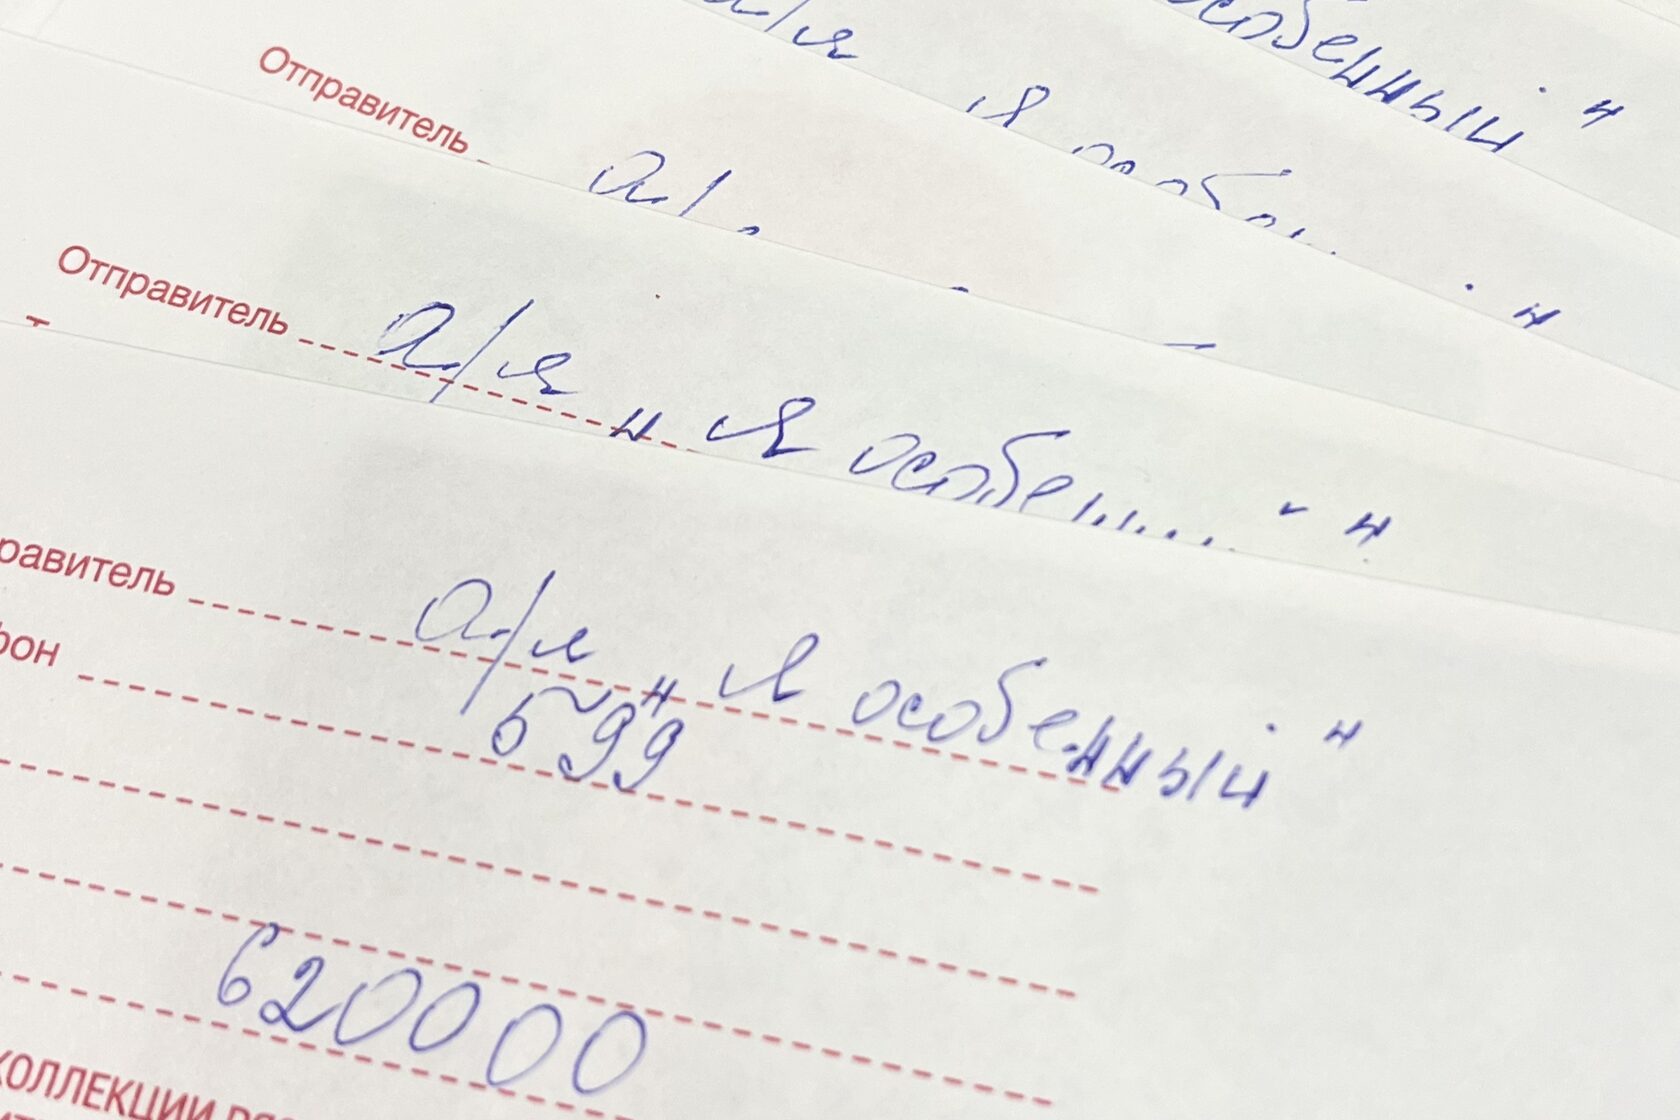 особенный"
а/я
Отправитель
а/
Отправитель а/я "Я особе
"
равитель а/я "Я особенный"
фон 599
620000
КОЛЛЕКЦИИ